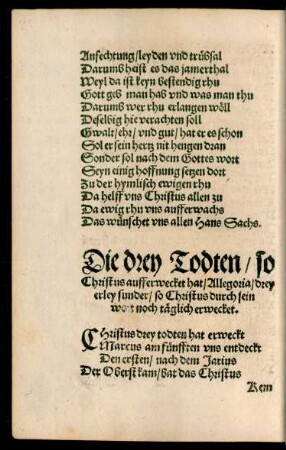 Anfechtung/ leyden vnd trübsal
Darumb heist es das jamerthal
Weyl da ist keyn bestendig rhu
Gott geb man hab vnd was man thu
Darumb wer rhu erlangen wöll
Deselbig hie verachten soll
Gwalt/ ehr/ vnd gut/ hat er es schon
Sol er sein hertz nit hengen dran
Sonder sol nach dem Gottes wort
Seyn einig hoffnung setzen dort
Zu der hymlisch ewigen rhu
Da helff vns Christus allen zu
Da ewig rhu vns aufferwachs
Das wünschet vns allen Hans Sachs.
Die drey Todten/ so
Christus aufferwecket hat/ Allegoria/ drey
erley sunder/ so Christus durch sein
wort noch täglich erwecket.
CHristus drey todten hat erweckt
Marcus am fünfften vns entdeckt
Den ersten/ nach dem Jarius
Der Oberst kam/ bat das Christus
Kem